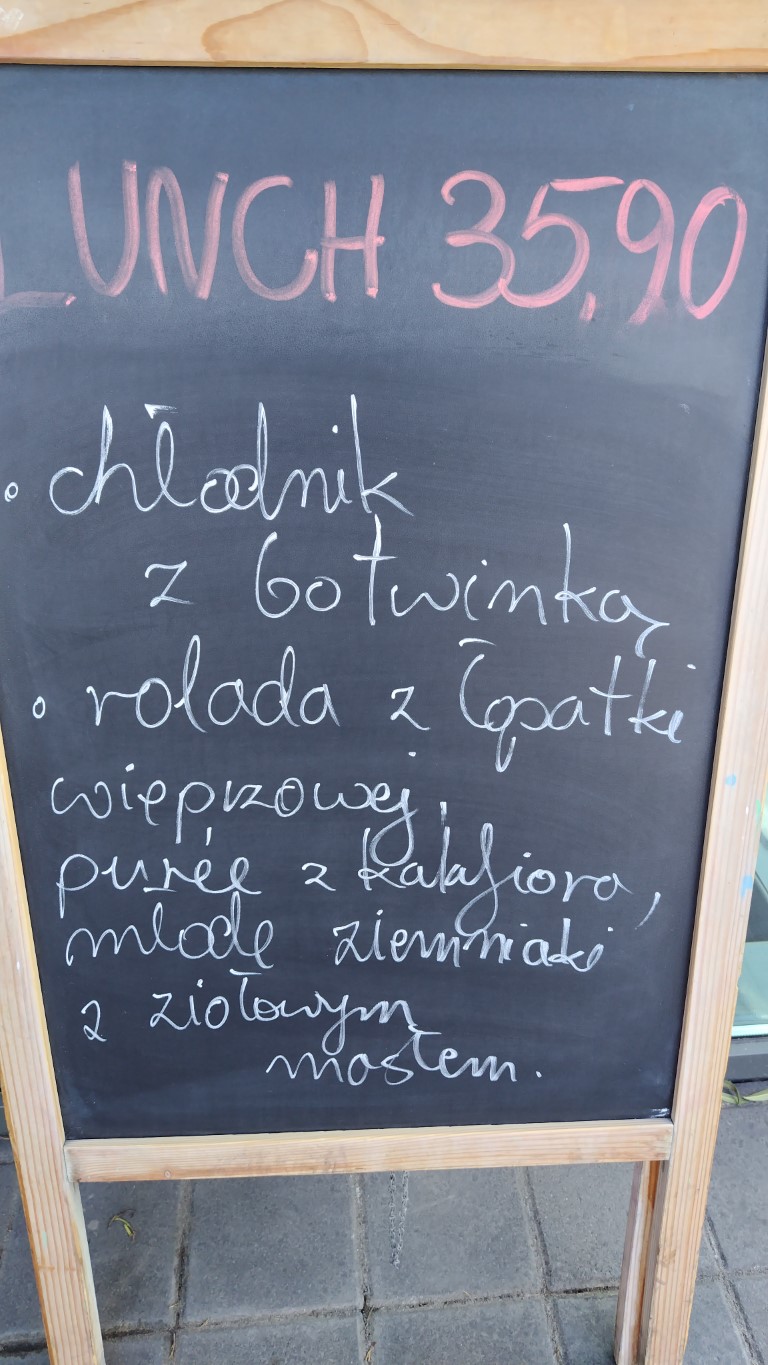 LUNCH 35,90
• chłodnik
z botwinką
• rolada z łopatki
wieprzowej,
purée z kalafiora,
młode ziemniaki
z ziołowym
masłem.